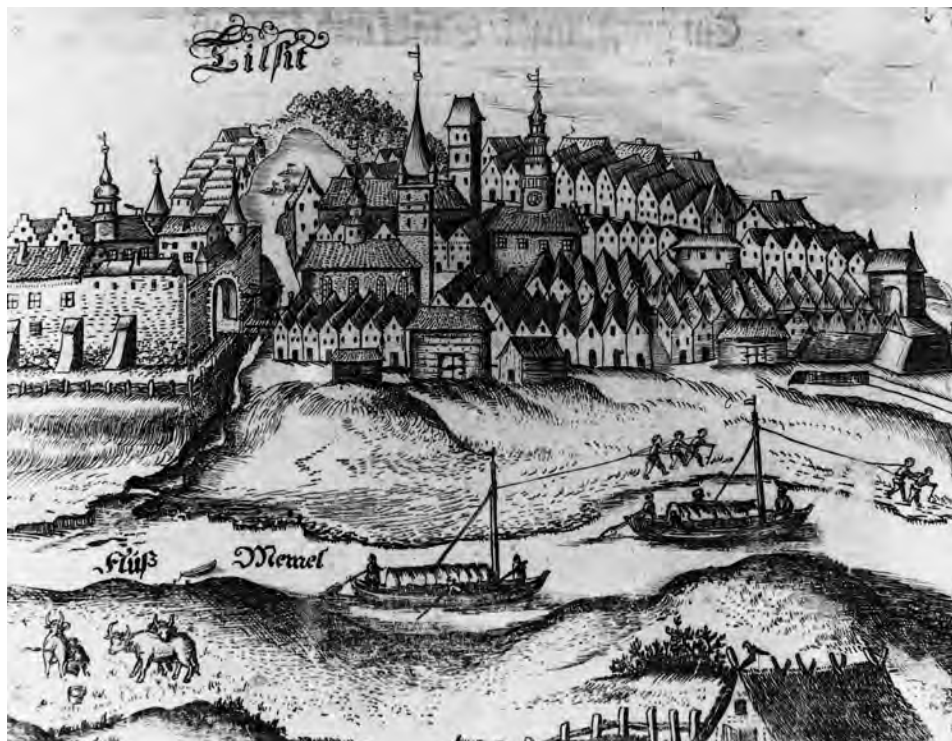 Tilsit
Fluß Memel